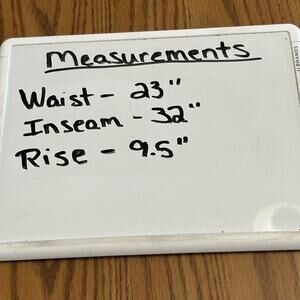 Measurements
Waist - 23"
Inseam - 32"
Rise - 9.5"